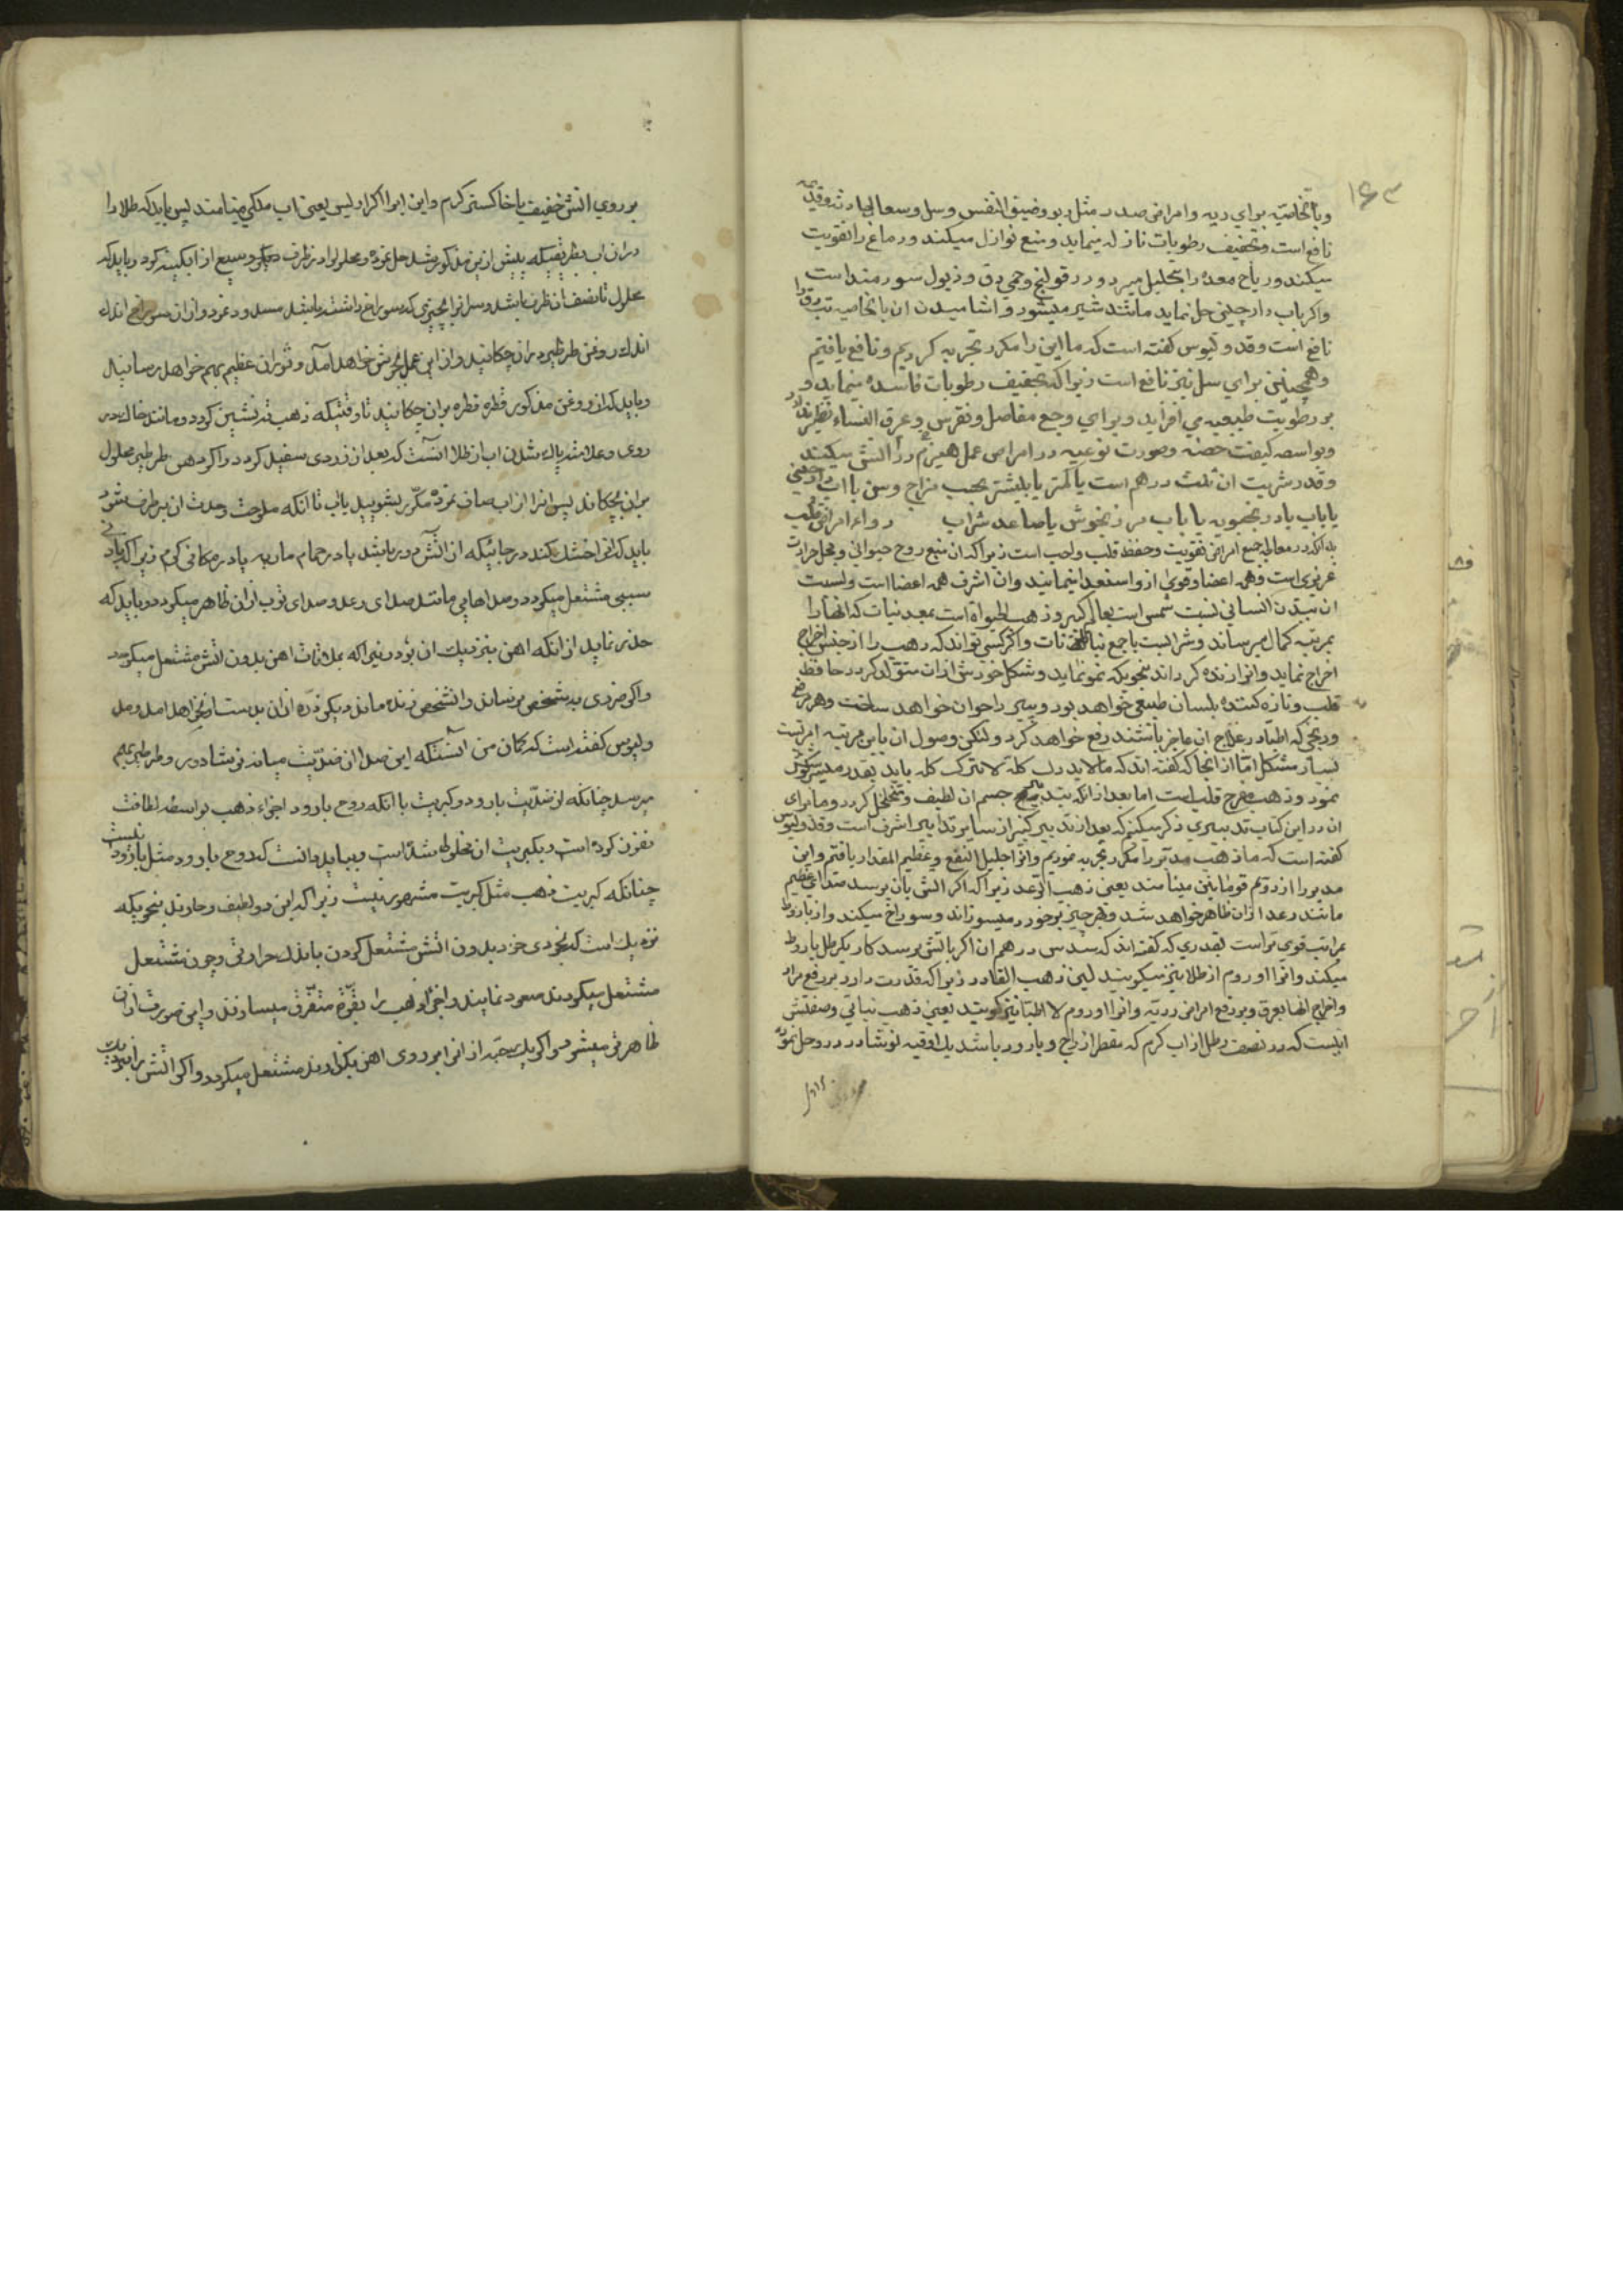 ۱۶۳
وبالخاصیه برای ریه وامراض صدر مثل ربو وضیق النفس وسل وسعال حادث وقدیم
نافع است وتجفیف رطوبات نازله مینماید ومنع نوازل میکند ودماغ را تقویت
میکند وریاح معده را بتحلیل میبرد ودر قولنج وحمی دق وذبول سودمند است
واکر باب دارچینی حل نماید مانند شیر میشود واشامیدن ان بالخاصیه تب دق را
نافع است وقدولیوس کفته است که ما این را مکرر تجربه کردیم ونافع یافتیم
وهمچنین برای سل نیز نافع است زیرا که تجفیف رطوبات فاسده مینماید و
بر رطوبت طبیعیه می افزاید وبرای وجع مفاصل ونقرس وعرق النساء نظیر ندارد
وبواسطه کیفیت وصورت نوعیه در امراض عمل هیزم در اتش میکند
وقدر شربت ان ثلث درهم است یا کمتر یا بیشتر بحسب مزاج وسن با اب دارچینی
یا باب بادرنجبویه یا باب مرزنجوش یا صاعد شراب دواء امراض قلب
بدانکه در معالجه جمیع امراض تقویت وحفظ قلب واجب است زیرا که ان منبع روح حیوانی ومحل حرارت
غریزی است وهمه اعضا وقوی ازو استفعدا مینمایند وان اشرف همه اعضا است ونسبت
ان ببدن انسانی نسبت شمس است بعالم کبیر وذهب الحیواة است بمعدنیات که انها را
بمرتبه کمال میرساند وشرابست باجمع نباتات واکر کسی تواند که ذهب را از جنس اخراج
اخراج نماید وانرا زنده کرداند بنحویکه نمو نماید وشکل خودش ازان متولد کردد حافظ
قلب وتازه کننده بلسان طبیعی خواهد بود وپیر را جوان خواهد ساخت وهر مرض
ورنجی که اطبا در علاج ان عاجز باشند رفع خواهد کرد ولیکن وصول ان باین مرتبه امریست
بسیار مشکل اما از انجا که کفته اند که مالایدرک کله لایترک کله باید بقدر میسر کوشش
نمود وذهب مفرح قلب است اما بعد از انکه بتدبیر جسم ان لطیف ومتخلخل کردد وما برای
ان در این کتاب تدبیری ذکر میکنم که بعد از تدبیر کبیر از سایر تدابیر اشرف است وقدولیوس
کفته است که ما ذهب مدبر را مکرر تجربه نمودیم وانرا جلیل النفع وعظیم المقدار یافتم واین
مدبر را از دوم قوما ینن مینامند یعنی ذهب الرعد زیرا که اکر اتش بان برسد صدای عظیم
مانند رعد ازان ظاهر خواهد شد وهر چیز برخورد میسوزاند وسوراخ میکند واز باروط
بمراتب قوی تر است بقدری که کفته اند که سدسی درهم ان اکر باتش برسد کار یکرطل باروط
میکند وانرا اوروم از طلا نیز میکویند لین ذهب القادر زیرا که قدرت دارد بر رفع مراد
واخراج انها بعرق وبر دفع امراض ردیه وانرا اوروم لا اطبا نیز کویند یعنی ذهب نباتی وصفتش
اینست که در نصف رطل از اب کرم که مقطر از زاج وبارود باشد یک اوقیه نوشادر در وحل نموده
بر روی اتش خفیف یا خاکستر کرم واین ابرا اکرا رلیس یعنی اب ملکی مینامند پس باید که طلا را
دران اب بطریقیکه پیش ازین مذکور شد حل نموده ومحلول را در ظرف دیکر وسیع از ابکینه کرد وباید که
محلول تا نصف ان ظرف باشد وسر انرا بچیزی که سوراخ داشته باشد مسدود نمود وازان سوراخ اندک
اندک روغن طرطیر دران چکانید واز این عمل بجوش خواهد امد وثوران عظیم بهم خواهد رسانید
وباید که از روغن مذکور قطره قطره بران چکانید تا وقتیکه ذهب ته نشین کردد ومانند خاک در
روی وعلامت پاک شدن اب از طلا انست که بعد از زردی سفید کردد واکر دهن طرطیر محلول
بران بچکاند پس انرا از اب صاف نموده مکرر بشویید باب تا انکه ملوحت وحدت ان برطرف شود
باید که انرا خشک کنند در جائیکه از اتش دور باشد یا در حمام ماریه یا در مکانی کرم زیرا که باد
سببی مشتعل میکردد وصداهایی مانند صدای رعد وصدای توپ ازان ظاهر میکردد وباید که
حذر نماید از انکه اهن نیز نزدیک ان بود زیرا که بملاقات اهن بدون اتش مشتعل میکردد
واکر ضرری بشخص برساند وانشخص زنده ماند دیکر ذره ازان بدست او نخواهد امد ومد
ولیوس کفته است که کمان من انستکه این صدا از ضدیت میانه نوشادر وطرطیر بهم
میرسد چنانکه از ضدیت بارود وکبریت با انکه روح بارود اجزاء ذهب بواسطه لطافت
نفوذ کرده است وبکبریت ان مخلوط شده است وبباید دانست که روح بارود مثل بارود نیست
چنانکه کبریت ذهب مثل کبریت مشهور نیست زیرا که این دو لطیف وحاد اند بنحویکه
نزدیک است که بخودی خود بدون اتش مشتعل کردند باندک حرارتی وچون مشتعل
مشتعل میکردند صعود نمایند واجزاء ذهب را بقوه متفرق میسازند واین صورت ازان
ظاهر میشود واکر یک حبه از انرا بر روی اهن بکذارند مشتعل میکردد واکر اتش را نزدیک